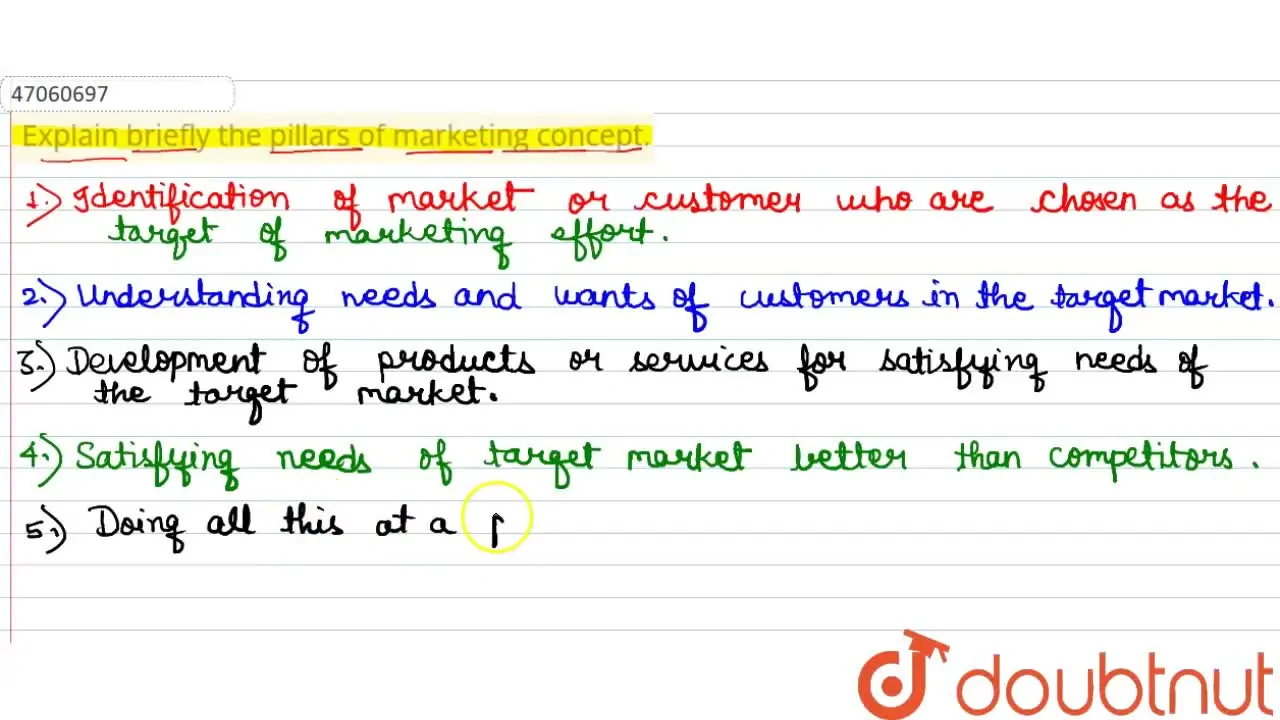 47060697
Explain briefly the pillars of marketing concept.
1.) Identification of market or customer who are chosen as the
target of marketing effort.
2.) Understanding needs and wants of customers in the target market.
3.) Development of products or services for satisfying needs of
the target market.
4.) Satisfying needs of target market better than competitors.
5.) Doing all this at a p
doubtnut